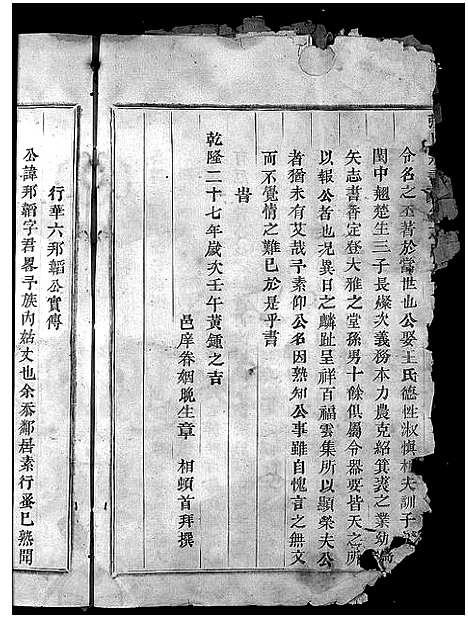 令名之丕著於當世也公娶王氏德性淑慎相夫訓子
閨中翹楚生三子長燦次義務本力農克紹箕裘之業幼
矢志書香定登大雅之堂孫男十餘俱屬令器要皆天之所
以報公者也况異日之麟趾呈祥百福雲集所以顯榮夫公
者猶未有艾哉予素仰公名因熟知公事雖自愧言之無文
而不覺情之難已於是乎書
旹
乾隆二十七年歲次壬午黃鍾之吉
邑庠眷姻晚生章 相頓首拜撰
行華六邦韜公實傳
公諱邦韜字君畧予族内姑丈也余忝鄰居素行蚤已熟聞